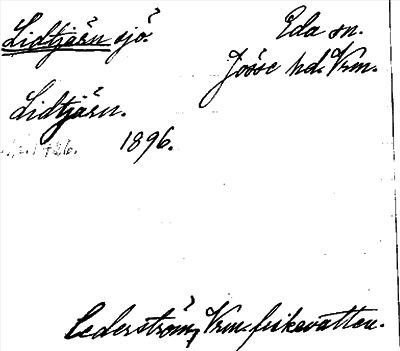 Lidtjärn sjö.
Eda sn.
Jösse hd. Vrm.
Lidtjärn.
1896.
Cederström, Vrm. fiskevatten.